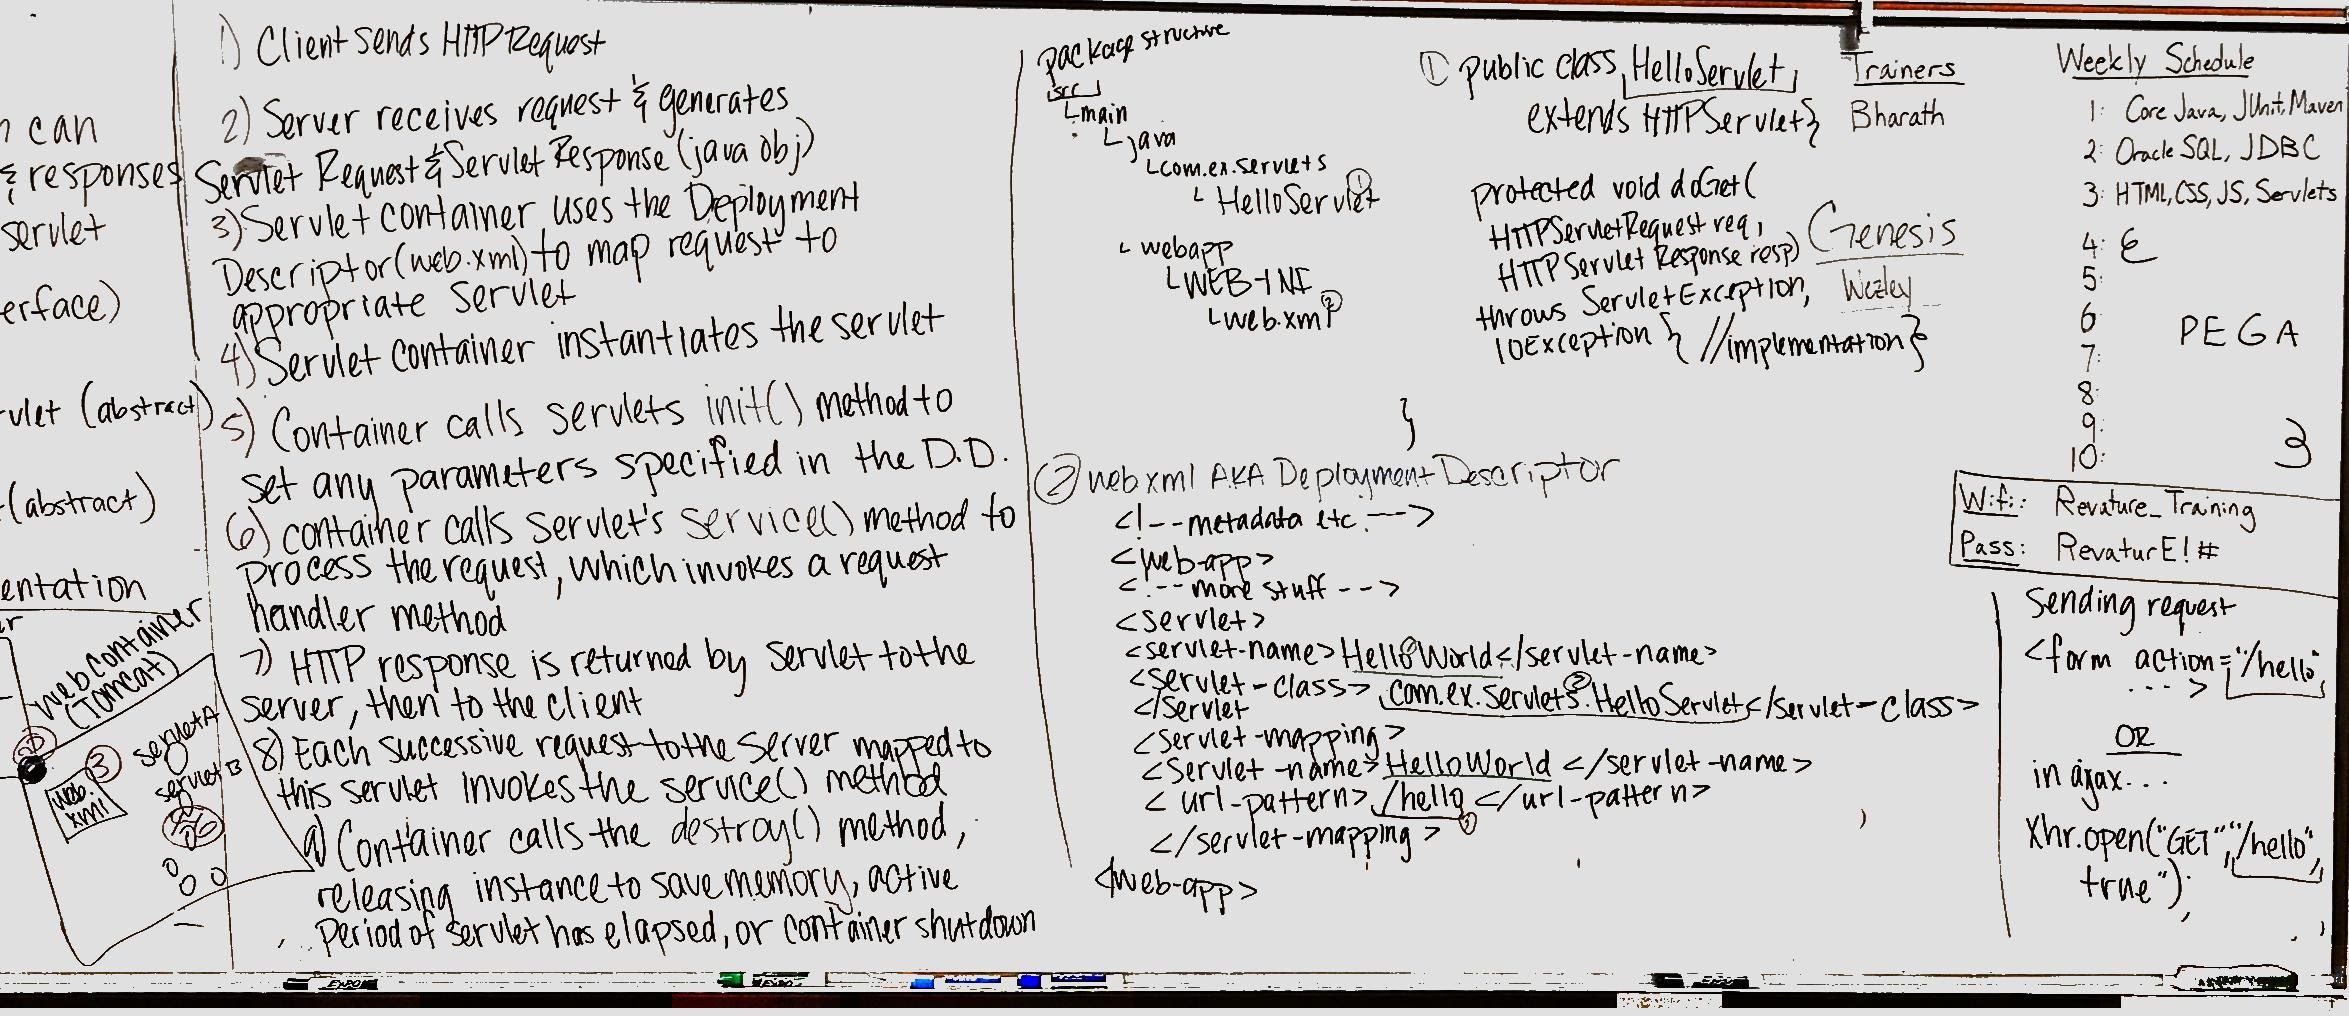 can
& responses
servlet
erface)
vlet (abstract)
(abstract)
entation
Web Container
(Tomcat)
3
servlet A
servlet B
web.
xml
1) Client sends HTTP Request
2) Server receives request & generates
Servlet Request & Servlet Response (java obj)
3) Servlet container uses the Deployment
Descriptor (web.xml) to map request to
appropriate servlet
4) Servlet container instantiates the servlet
5) Container calls servlets init() method to
set any parameters specified in the D.D.
6) container calls servlet's service() method to
process the request, which invokes a request
handler method
7) HTTP response is returned by servlet to the
server, then to the client
8) Each successive request to the server mapped to
this servlet invokes the service() method
9) Container calls the destroy() method,
releasing instance to save memory, active
Period of servlet has elapsed, or container shutdown
package structure
src
main
java
com.ex.servlets
HelloServlet ①
webapp
WEB-INF
web.xml ②
① public class HelloServlet
extends HTTPServlet {
protected void doGet(
HTTPServletRequest req,
HTTPServlet Response resp)
throws ServletException,
IOException { //implementation }
}
② web xml AKA Deployment Descriptor
<!-- metadata etc. -->
<web-app>
<!-- more stuff --->
<servlet>
<servlet-name> HelloWorld </servlet-name>
<servlet-class> com.ex.servlets.HelloServlet </servlet-class>
</servlet
<servlet-mapping>
<servlet-name> HelloWorld </servlet-name>
<url-pattern> /hello </url-pattern>
</servlet-mapping>
</web-app>
Trainers
Bharath
Genesis
Wezley
Weekly Schedule
1: Core Java, JUnit, Maven
2: Oracle SQL, JDBC
3: HTML, CSS, JS, Servlets
4:
5:
6:
7:
8:
9:
10:
PEGA
3
Wifi: Revature_Training
Pass: RevaturE!#
Sending request
<form action="/hello"
. . . >
OR
in ajax...
Xhr.open("GET","/hello",
true");
EXPO